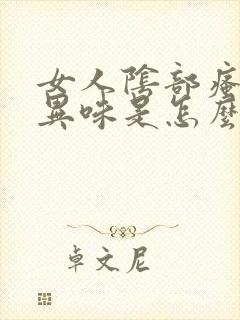 女人陰部瘙
異味是怎麼
卓文尼